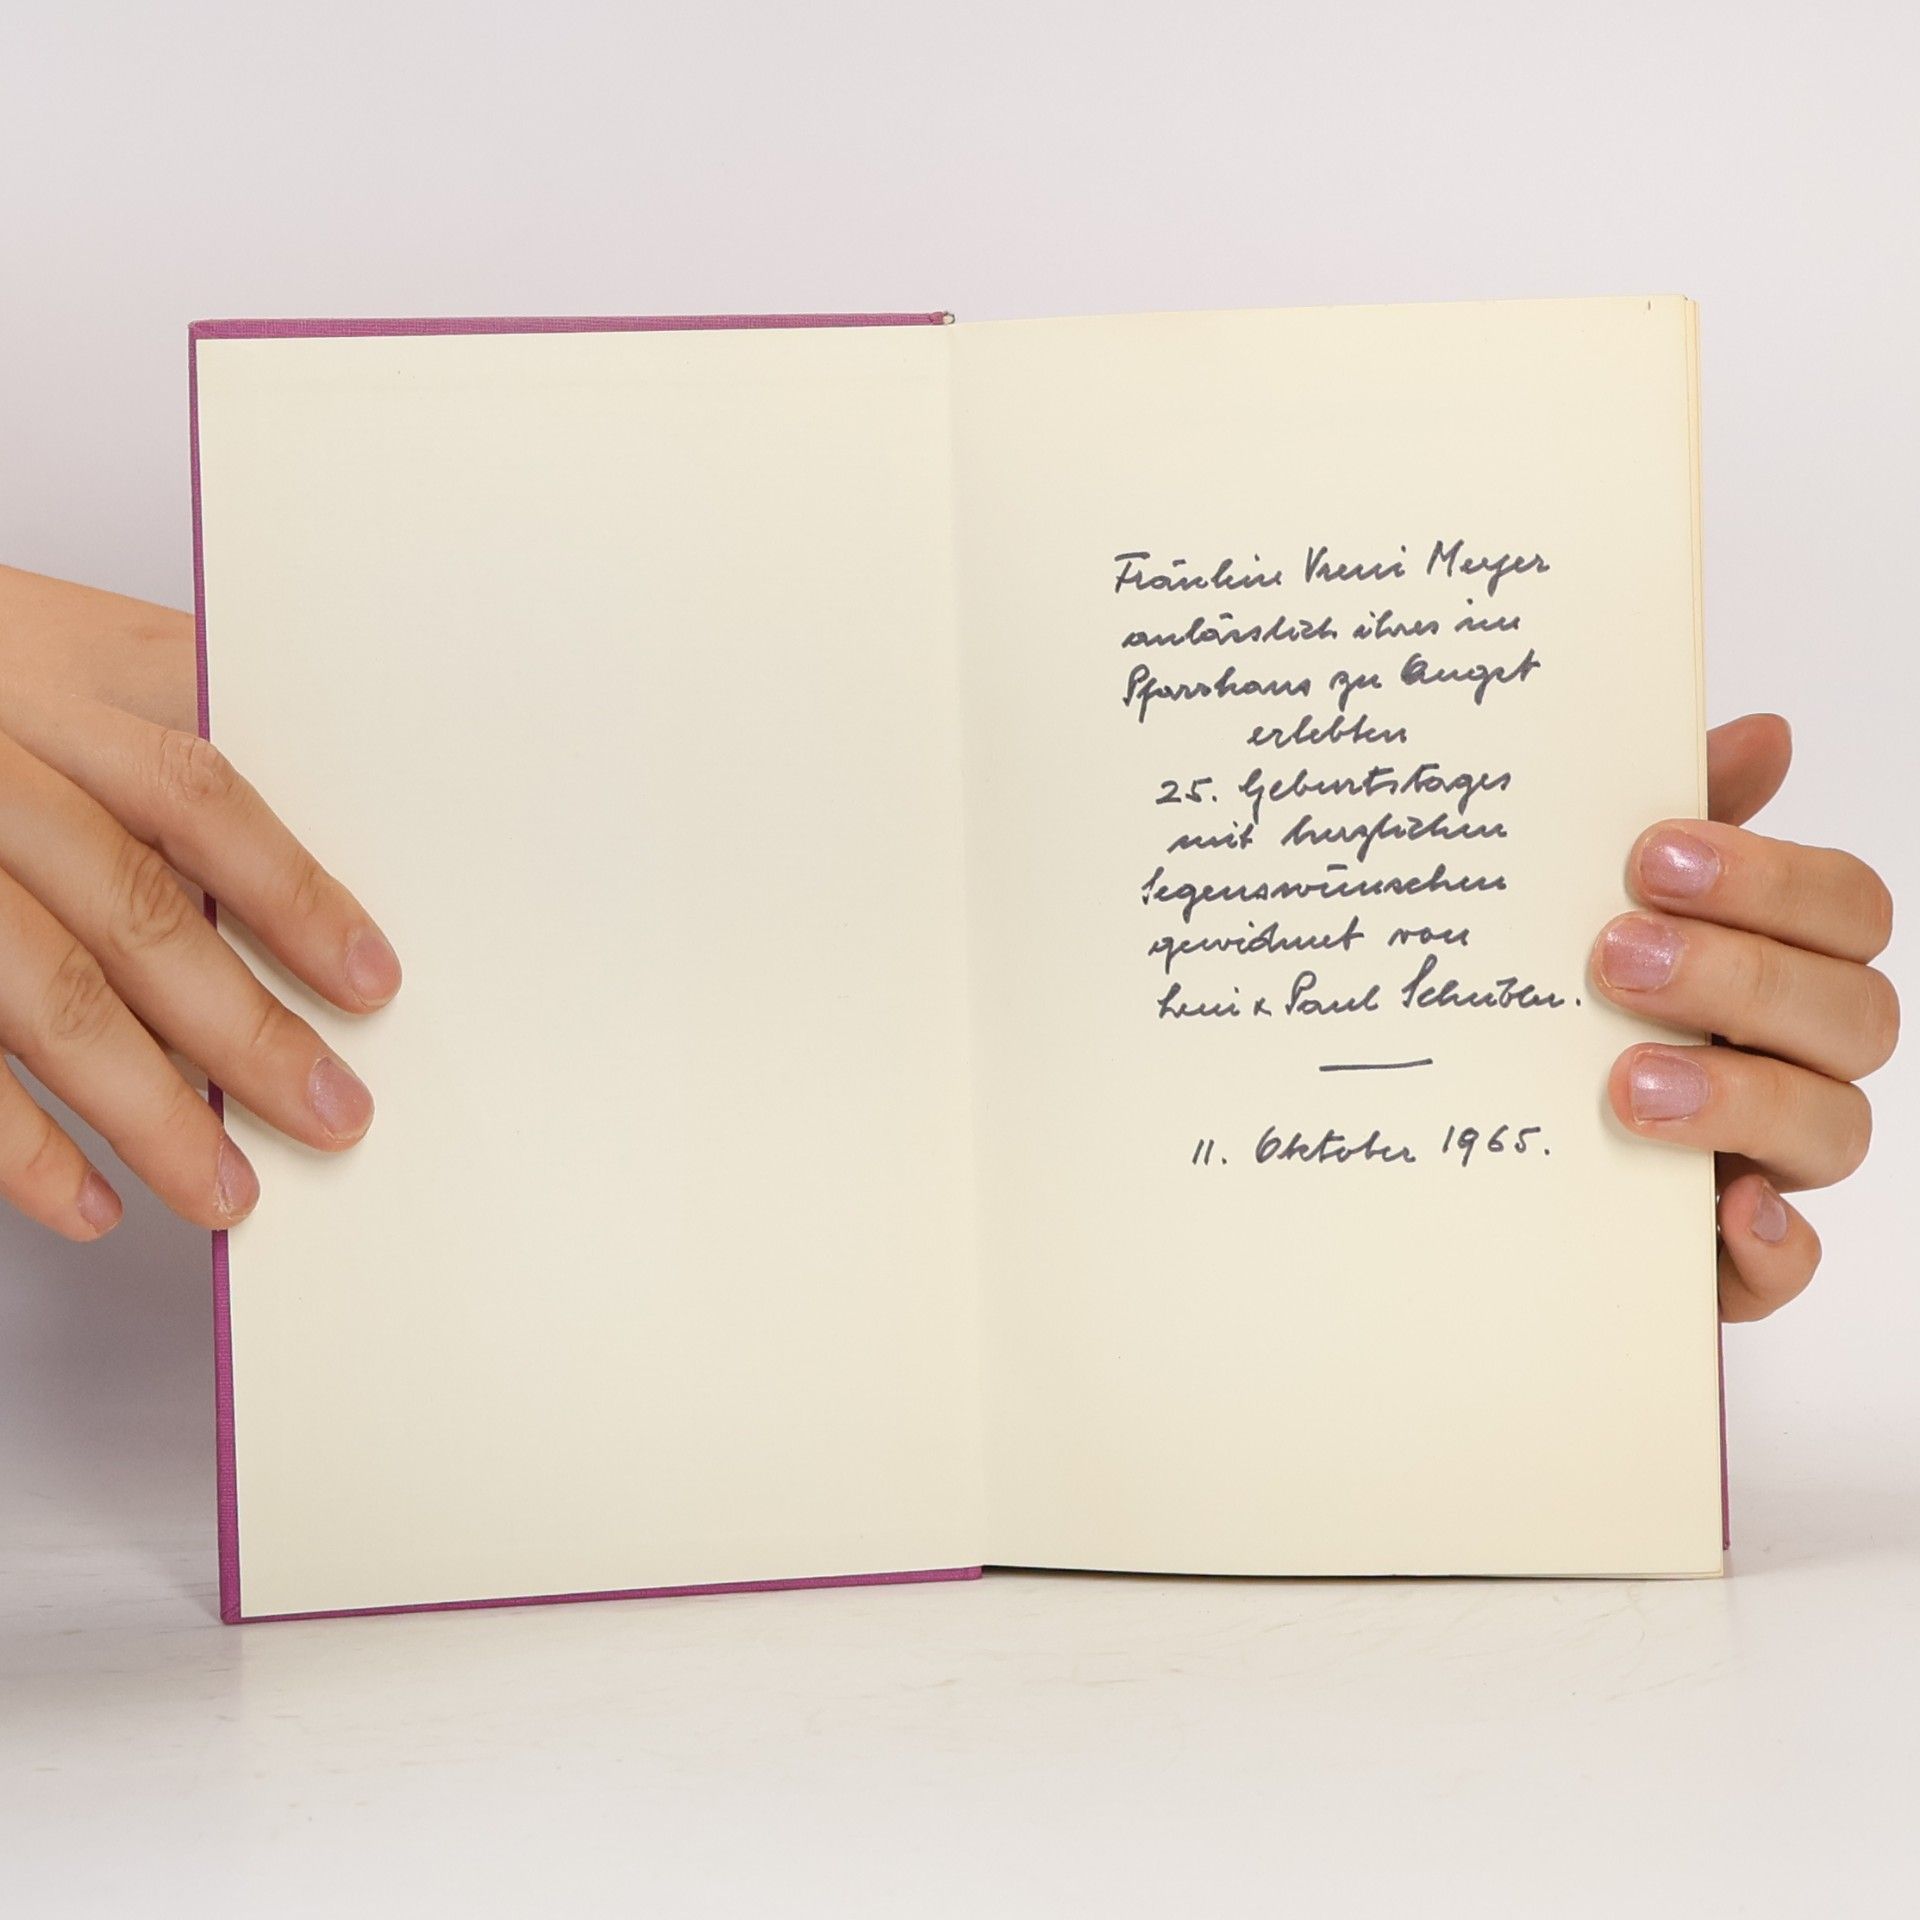 Fräulein Vreni Meyer
anlässlich ihres im
Pfarrhaus zu Augst
erlebten
25. Geburtstages
mit herzlichen
Segenswünschen
gewidmet von
Leni & Paul
11. Oktober 1965.